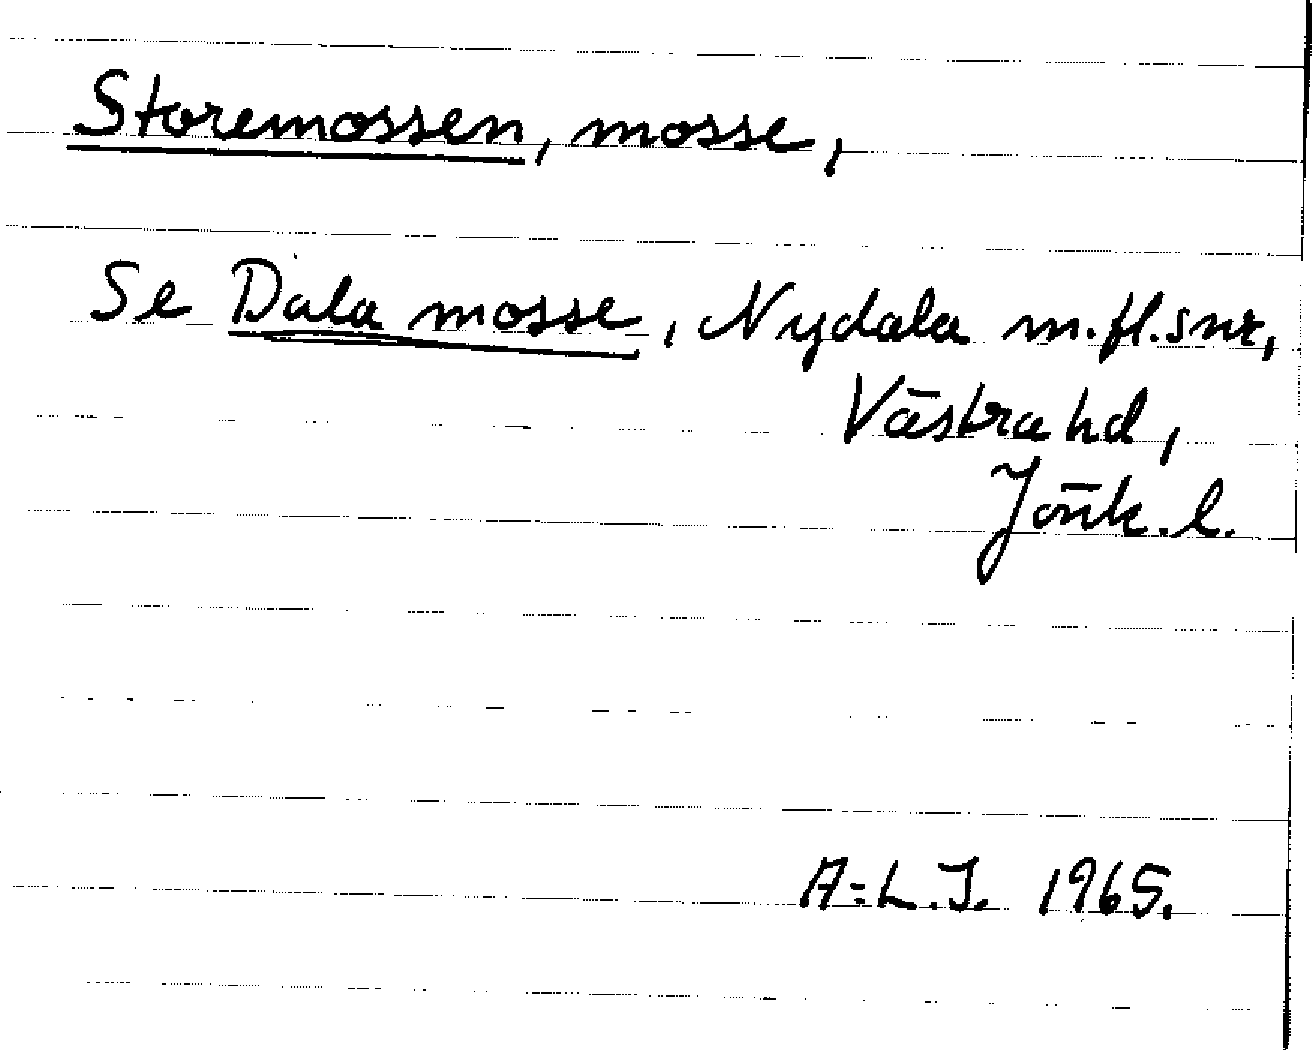 Storemossen, mosse,
Se Dala mosse, Nydala m.fl.snr,
Västra hd,
Jönk.l.
A-L.J. 1965.